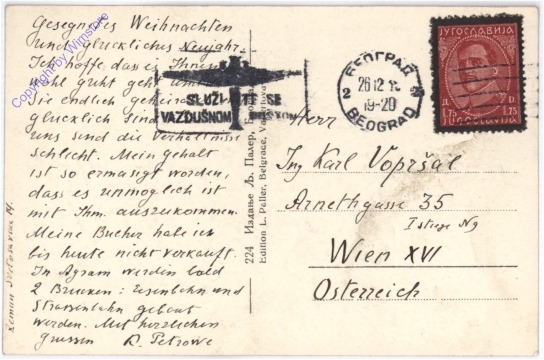 Gesegnetes Weihnachten
und glückliches Neujahr.
Ich hoffe dass es Ihnen
wohl guht geht und
Sie endlich geheira
glücklich sind
uns sind die Verhältnisse
schlecht. Mein Gehalt
ist so ermässigt worden,
dass es unmöglich ist
mit Ihm auszukommen.
Meine Bücher habe ich
bis heute nicht verkauft.
In Agram werden bald
2 Brücken: Eisenbahn und
Strassenbahn gebaut
werden. Mit herzlichen
Grüssen D. Petrowe
Copyright by Wimstore
SLUŽITE SE
VAZDUŠNOM POŠTOM
224 Издање Љ. Палер,
Edition L. Peller, Belgrace,
БЕОГРАД
2 26 12 2
19-20
BEOGRAD
ЈУГОСЛАВИЈА
Д. D.
1.75 1.75
JUGOSLAVIJA
Herr
Ing Karl Vopršal
Arnethgasse 35
Wien XVI
Österreich